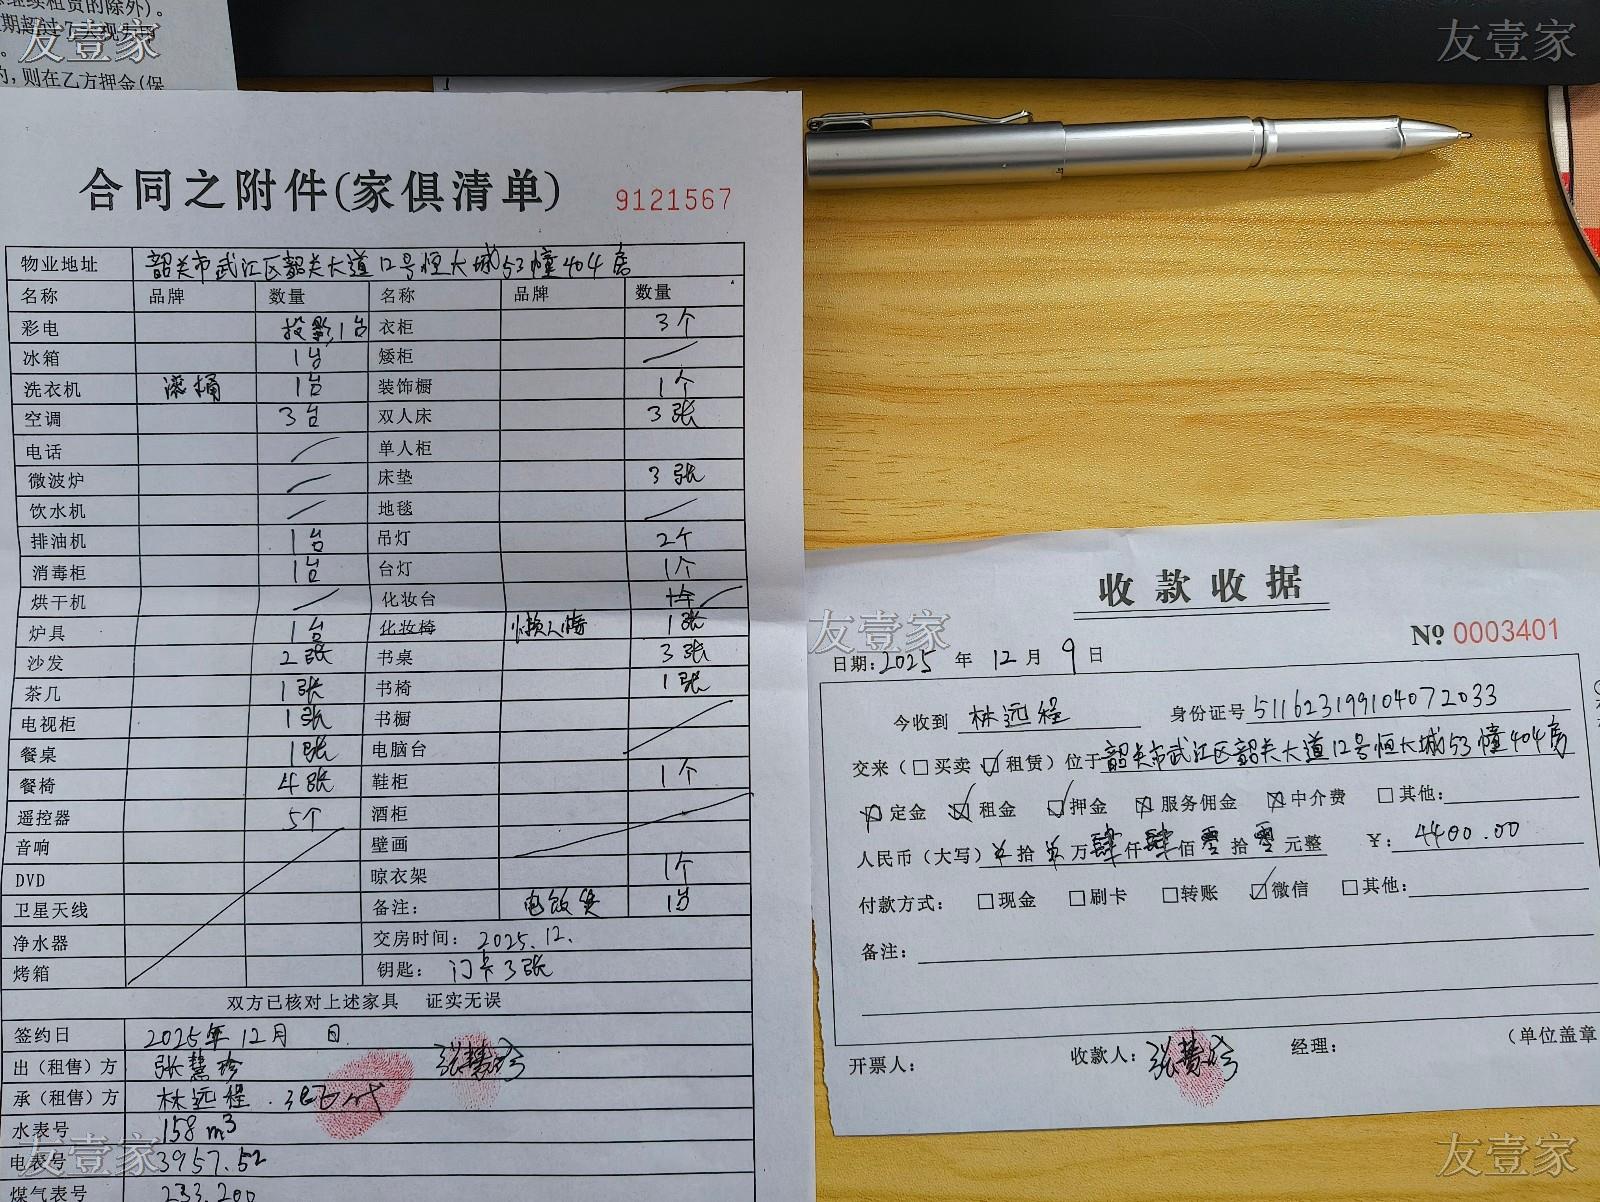 继续租赁的除外)。
友壹家
的,则在乙方押金(保
友壹家
合同之附件(家俱清单) 9121567
物业地址 韶关市武江区韶关大道12号恒大城53幢404房
名称 品牌 数量 名称 品牌 数量
彩电 投影1台 衣柜 3个
冰箱 1台 矮柜
洗衣机 滚桶 1台 装饰橱 1个
空调 3台 双人床 3张
电话 单人柜
微波炉 床垫 3张
饮水机 地毯
排油机 1台 吊灯 2个
消毒柜 1台 台灯 1个
烘干机 化妆台
炉具 1台 化妆椅 懒人椅 1张
沙发 2张 书桌 3张
茶几 1张 书椅 1张
电视柜 1张 书橱
餐桌 1张 电脑台
餐椅 4张 鞋柜 1个
遥控器 5个 酒柜
音响 壁画
DVD 晾衣架 1个
卫星天线 备注: 电饭煲 1台
净水器 交房时间: 2025.12.
烤箱 钥匙: 门卡3张
双方已核对上述家具 证实无误
签约日 2025年12月 日
出(租售)方 张慧珍 张慧珍
承(租售)方 林远程.
水表号 158m³
电表号 3957.52
煤气表号 233.200
友壹家
友壹家
收款收据
№ 0003401
日期:2025年12月9日
今收到 林远程 身份证号 511623199104072033
交来(□买卖 ☑租赁)位于韶关市武江区韶关大道12号恒大城53幢404房
定金 租金 押金 服务佣金 中介费 □其他:
人民币(大写)零拾零万肆仟肆佰零拾零元整 ¥: 4400.00
付款方式: □现金 □刷卡 □转账 ☑微信 □其他:
备注:
开票人: 收款人:张慧珍 经理: (单位盖章
友壹家